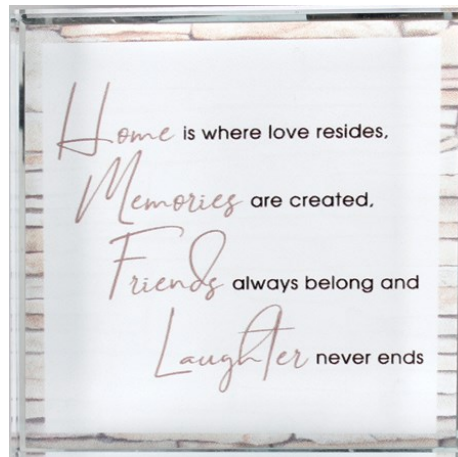 Home is where love resides,
Memories are created,
Friends always belong and
Laughter never ends